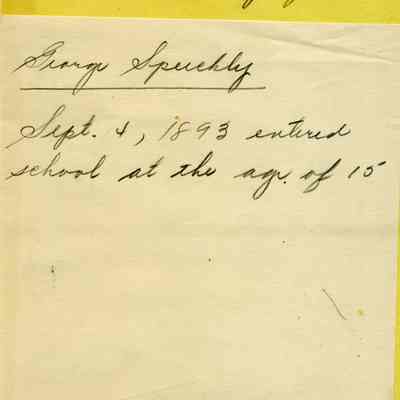 George Speechly
Sept. 4, 1893 entered
school at the age. of 15